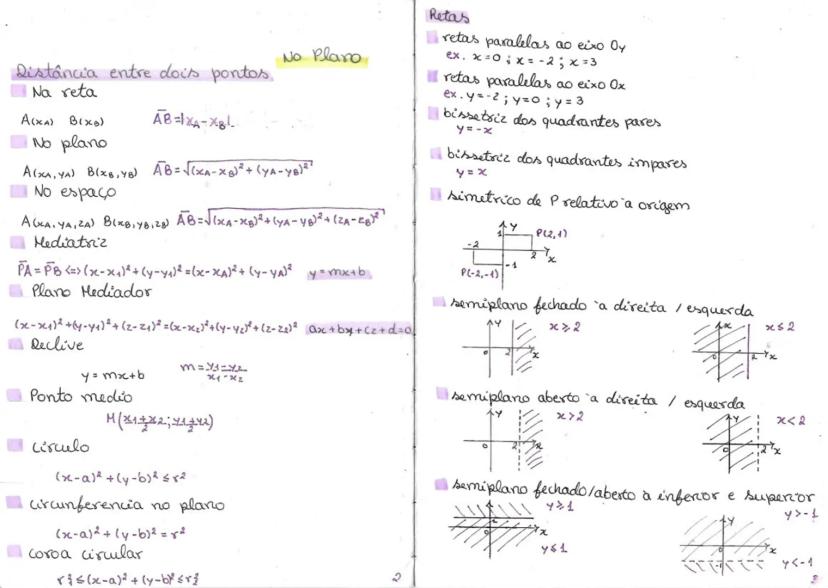 No Plano
Distância entre dois pontos
Na reta
A(xA) B(xB) AB=|xA-xB|
No plano
A(xA, yA) B(xB, yB) AB=√(xA-xB)²+(yA-yB)²
No espaço
A(xA, yA, zA) B(xB, yB, zB) AB=√(xA-xB)²+(yA-yB)²+(zA-zB)²
Mediatriz
PA=PB <=> (x-x1)²+(y-y1)²=(x-xA)²+(y-yA)² y=mx+b
Plano Mediador
(x-x1)²+(y-y1)²+(z-z1)²=(x-x2)²+(y-y2)²+(z-z2)² ax+by+cz+d=0
Declive
y=mx+b m=y1-y2/x1-x2
Ponto medio
M(x1+x2/2; y1+y2/2)
círculo
(x-a)²+(y-b)²≤r²
circunferencia no plano
(x-a)²+(y-b)²=r²
coroa circular
r²1≤(x-a)²+(y-b)²≤r²2
2
Retas
retas paralelas ao eixo Oy
ex. x=0; x=-2; x=3
retas paralelas ao eixo Ox
ex. y=-2; y=0; y=3
bissetriz dos quadrantes pares
y=-x
bissetriz dos quadrantes impares
y=x
simetrico de P relativo à origem
y
1 P(2,1)
-2 2 x
P(-2,-1) -1
semiplano fechado à direita / esquerda
y x≥2 x x≤2
0 2 x 0 2 x
semiplano aberto à direita / esquerda
y x>2 y x<2
0 2 x 0 2 x
semiplano fechado/aberto à inferior e superior
y y≥1 y y>-1
1
0 x 0 x
y≤1 -1 y<-1
3